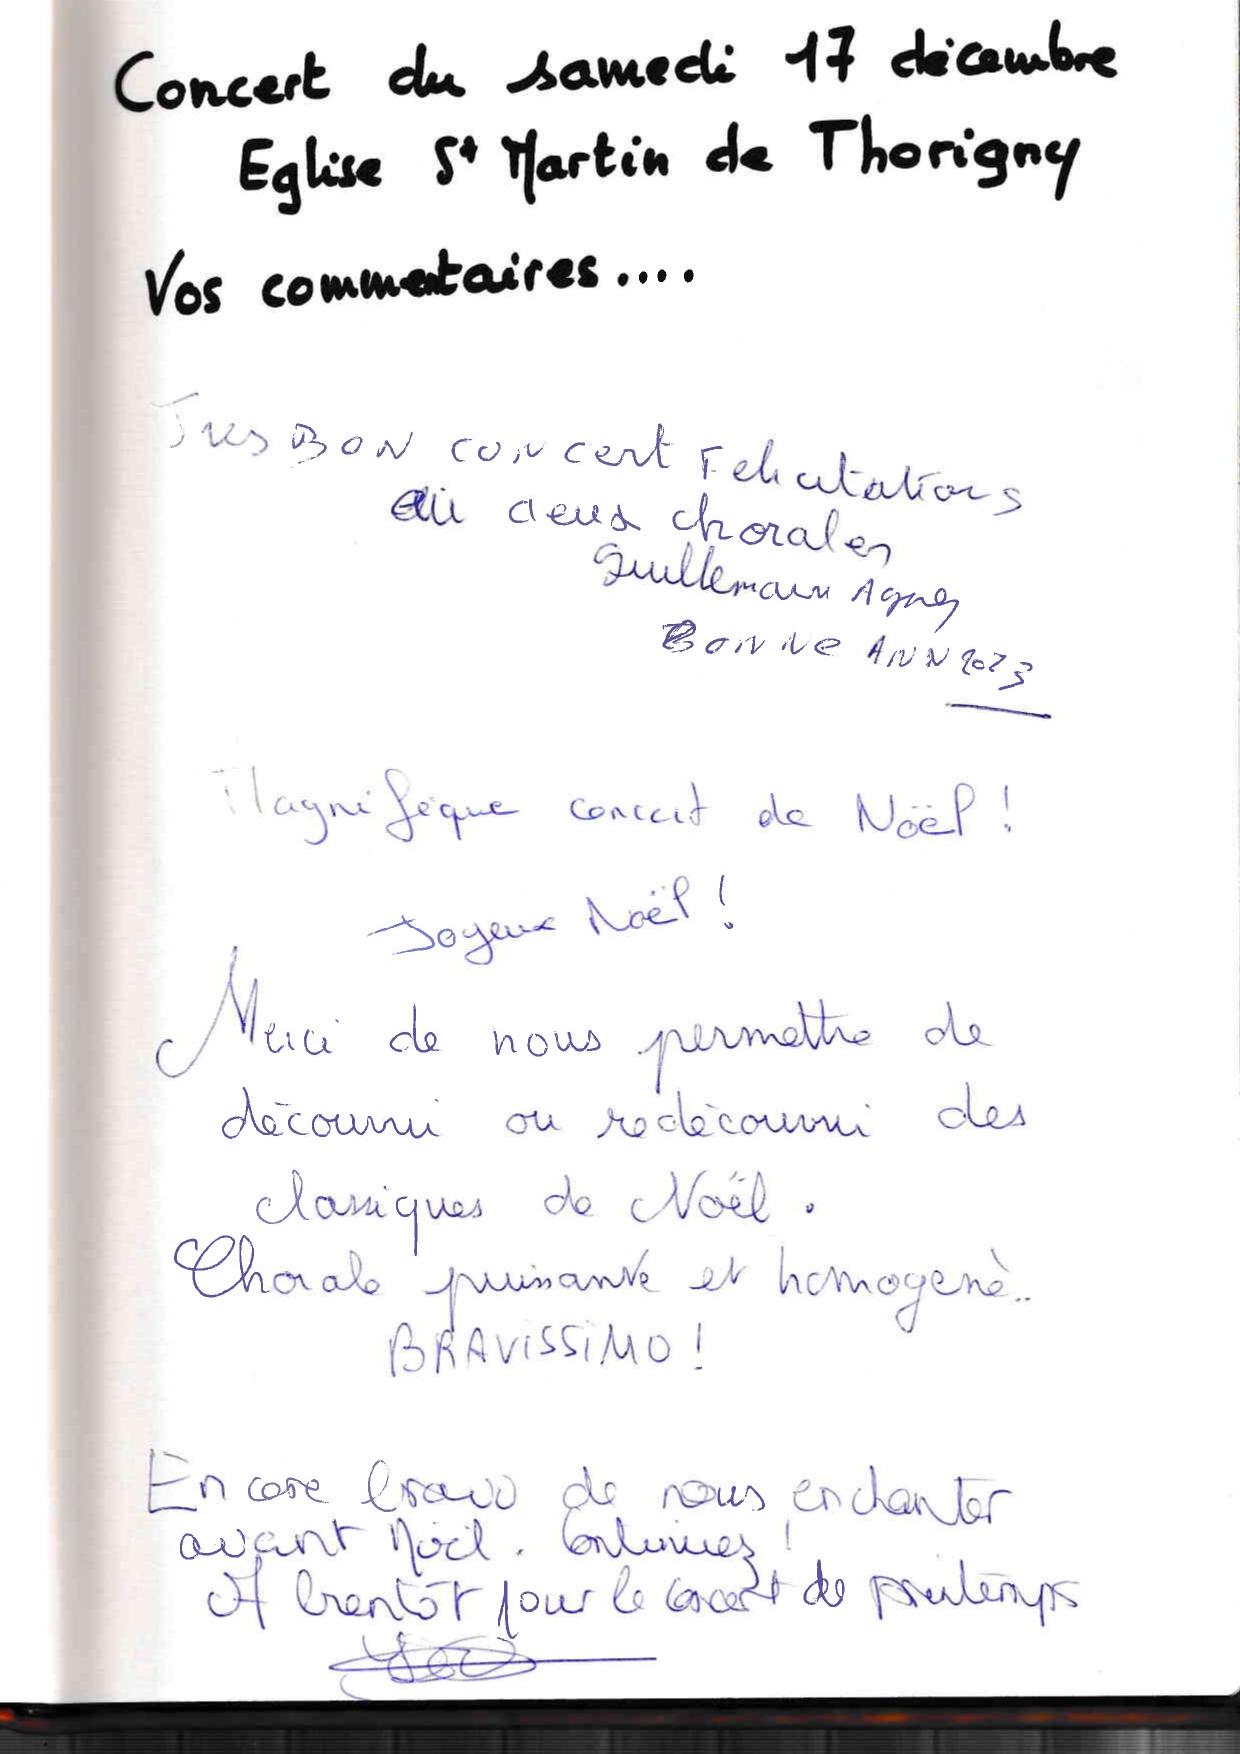 Concert du samedi 17 décembre
Eglise St Martin de Thorigny
Vos commentaires....
Tres BON concert Felicitations
au deux chorales
Guillemain Agnes
BONNE ANN 2023
Magnifique concert de Noël !
Joyeux Noël !
Merci de nous permettre de
découvrir ou redécouvrir des
classiques de Noël.
Chorale puissante et homogenè..
BRAVISSIMO !
Encore bravo de nous enchanter
avant Noël. Continuez !
A bientôt pour le concert de printemps